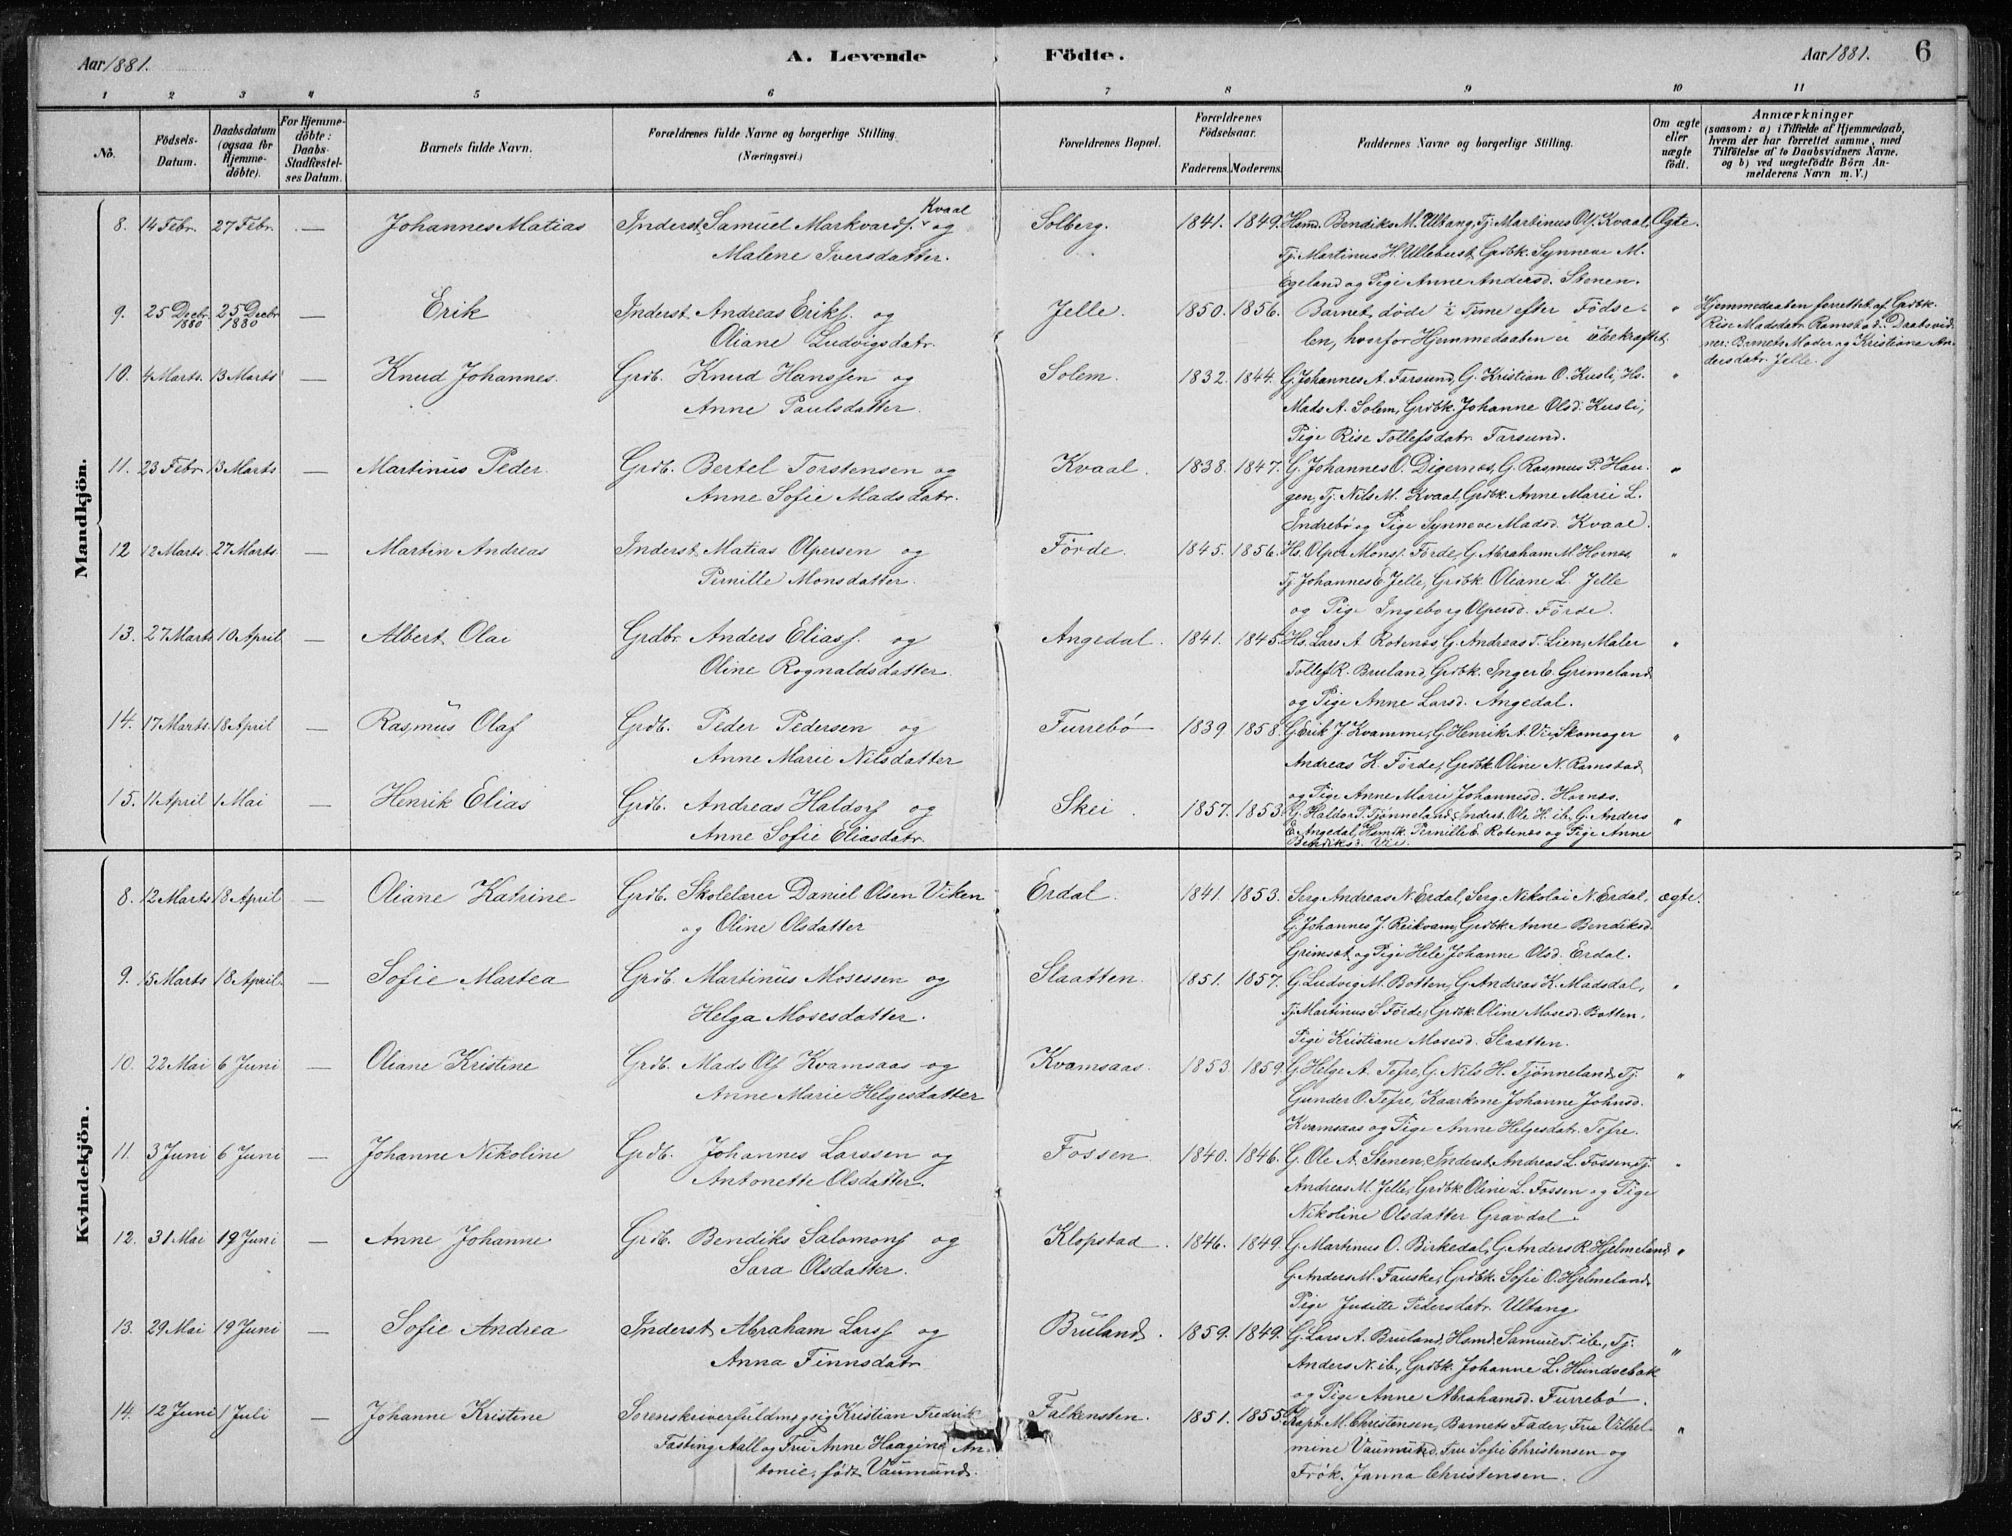 Aar 1881.
A. Levende Födte.
Aar 1881.
6
1 2 3 4 5 6 7 8 9 10 11
No.
Födsels-Datum.
Daabsdatum (ogsaa for Hjemme-döbte).
For Hjemme-döbte: Daabs-Stadfæstel-ses Datum.
Barnets fulde Navn.
Forældrenes fulde Navne og borgerlige Stilling. (Næringsvei.)
Forældrenes Bopæl.
Forældrenes Födselsaar.
Faderens. Moderens.
Faddernes Navne og borgerlige Stilling.
Om ægte eller uægte födt.
Anmærkninger (saasom: a) i Tilfælde af Hjemmedaab, hvem der har forrettet samme, med Tilföielse af to Daabsvidners Navne, og b) ved uægtefödte Börn An-melderens Navn m. V.)
Mandkjön.
8. 14 Febr. 27 Febr. — Johannes Matias Inderst Samuel Markvards. Kvaal og Solberg. 1841. 1849. Hsmd. Bendiks M. Ultang, Tj. Martinus Ols. Kvaal, Ægte.
Malene Iversdatter. Tj. Martinus H. Ullebust, Grdbk. Synneve M.
Egeland og Pige Anne Andersd. Stenen.
9. 25 Decbr. 1880 25 Decbr 1880 — Erik Inderst Andreas Eriks. og Jelle. 1850. 1856. Barnet døde ½ Time efter Fødse- " Hjemmedaaben forrettet af Grdbk.
Oliane Ludvigsdatr. len, hvorfor Hjemmedaaben ei stadfæstet. Rise Madsdatr. Ramstad. Daabsvid-
ner: Barnets Moder og Kristiane An-
dersdatr. Jelle.
10. 4 Marts. 13 Marts — Knud Johannes. Grdb. Knud Hanssen og Solem. 1832. 1844. G. Johannes A. Farsund, G. Kristian O. Kusli, Hs. "
Anne Paulsdatter. Mads A. Solem, Grdbk. Johanne Olsd. Kusli,
Pige Rise Tollefsdatr. Farsund.
11. 23 Febr. 13 Marts — Martinus Peder. Grdb. Bertel Torstensen og Kvaal. 1838. 1847. G. Johannes O. Digernes, G. Rasmus P. Hau- "
Anne Sofie Madsdatr. gen, Tj. Nils M. Kvaal, Grdbk. Anne Marie L.
Indrebø og Pige Synneve Madsd. Kvaal.
12 12 Marts. 27 Marts. — Martin Andreas Inderst Matias Olpersen og Førde. 1845. 1856. Hs. Olper Mons. Førde, G. Abraham M. Hornes, "
Pernille Monsdatter. Tj. Johannes E. Jelle, Grdbk. Oliane L. Jelle
og Pige Ingeborg Olpersd. Førde.
13. 27 Marts 10 April — Albert Olai Grdbr. Anders Elias. og Angedal. 1841. 1845. Hs. Lars A. Rotenes, G. Andreas T. Lien, Maler "
Oline Rognaldsdatter. Tollef R. Bruland, Grdbk. Inger E. Grimeland
og Pige Anne Larsd. Angedal.
14. 17 Marts. 18 April — Rasmus Olaf Grdb. Peder Pedersen og Furrebø 1839 1858. G. Erik J. Kvamme, G. Henrik A. Vie, Skomager "
Anne Marie Nilsdatter Andreas K. Førde, Grdbk. Oline N. Ramstad
og Pige Anne Marie Johannesd. Hornes.
15. 11 April 1 Mai — Henrik Elias Grdb. Andreas Haldors. og Skei. 1857. 1853. G. Haldor P. Tjønneland, Inderst. Ole H. ib., G. Anders "
Anne Sofie Eliasdatr. E. Angedal, Hsmk. Pernille E. Rotenes og Pige Anne
Bendiksd. Vie.
Kvindekjön.
8. 12 Marts 18 April — Oliane Katrine Grdb. Skolelærer Daniel Olsen Viken Erdal. 1841. 1853. Serg. Andreas N. Erdal, Serg. Nikolai N. Erdal, ægte.
og Oline Olsdatter G. Johannes J. Reikvam, Grdbk. Anne Bendiksd.
Grimset og Pige Hele Johanne Olsd. Erdal.
9. 15 Marts 18 April. — Sofie Martea Grdb. Martinus Mosessen og Slaatten. 1851. 1857. G. Ludvig M. Botten, G. Andreas K. Madsdal, "
Helga Mosesdatter. Tj. Martinus S. Førde, Grdbk. Oline Mosesd. Botten,
Pige Kristiane Mosesd. Slaatten.
10. 22 Mai 6 Juni — Oliane Kristine Grdb. Mads Ols. Kvamsaas og Kvamsaas. 1853. 1859. G. Helge A. Tefre, G. Nils H. Tjønneland, Tj. "
Anne Marie Helgesdatter Gunder O. Tefre, Kaarkone Johanne Johnsd.
Kvamsaas og Pige Anne Helgesdatr. Tefre.
11. 3 Juni 6 Juni — Johanne Nikoline Grdb. Johannes Larssen og Fossen. 1840. 1846. G. Ole A. Stenen, Inderst Andreas L. Fossen, Tj. "
Antonette Olsdatter. Andreas M. Jelle, Grdbk. Oline L. Fossen og Pige
Nikoline Olsdatter Gravdal.
12. 31 Mai 19 Juni — Anne Johanne Grdb. Bendiks Salomons. og Klopstad. 1846. 1849. G. Martinus O. Birkedal, G. Anders R. Hjelmeland, "
Sara Olsdatter. G. Anders M. Fauske, Grdbk. Sofie O. Hjelmeland,
Pige Juditte Pedersdatr. Ultang
13. 29 Mai 19 Juni — Sofie Andrea Inderst Abraham Larss. og Bruland. 1859. 1849. G. Lars A. Bruland, Hsmd. Samuel T. ib., Tj. "
Anna Finnsdatr. Anders N. ib., Grdbk. Johanne L. Hundsebak
og Pige Anne Abrahamsd. Furrebø.
14. 12 Juni 1 Juli — Johanne Kristine Sorenskriverfuldmægtig Kristian Fredrik Falkensten. 1851. 1855. Kapt. M. Christensen, Barnets Fader, Fru Vilhel- "
Fasting Aall og Fru Anne Haagine An- mine Vaumund, Fru Sofie Christensen og
tonie, født Vaumund. Frøk. Janna Christensen.